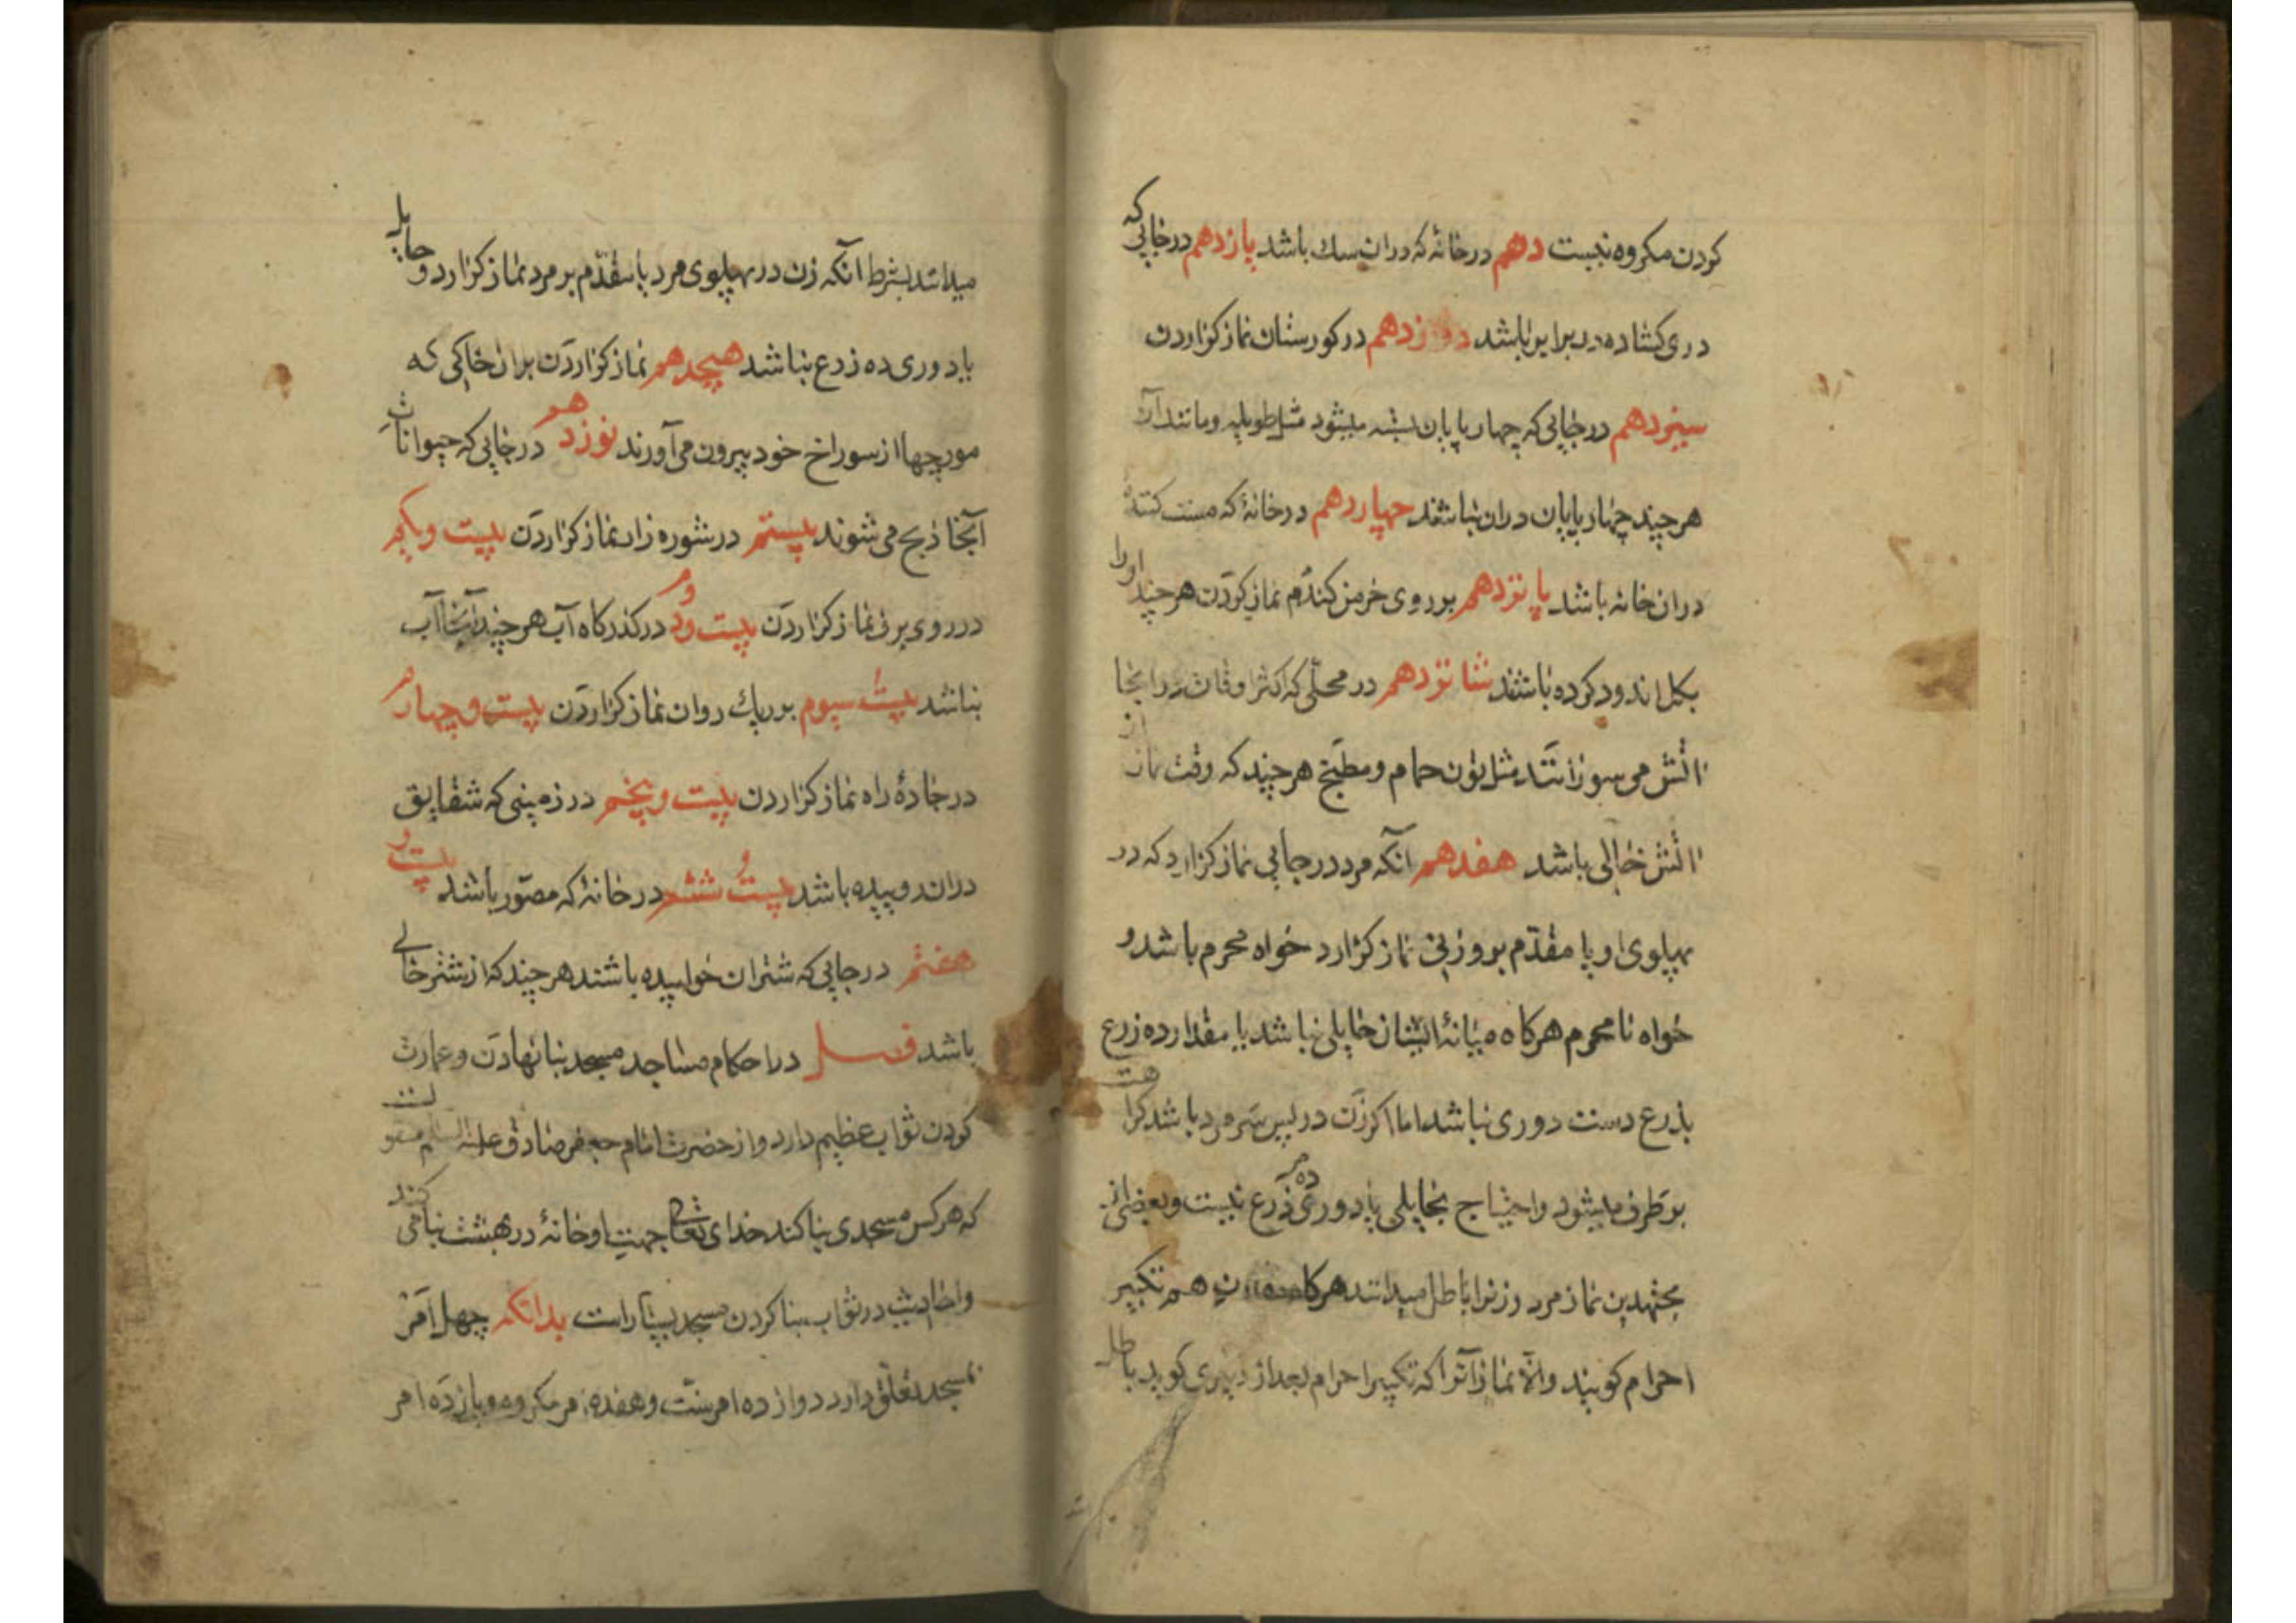 کردن مکروه نیست دهم در خانهٔ که دران سک باشد یازدهم در جایی که
دری کشاده در برابر باشد دوازدهم در کورستان نماز کزاردن
سیزدهم در جایی که چهار پایان بسته میشود مثل طویله و مانند آن
هر چند چهار پایان دران نباشند چهاردهم در خانهٔ که مست کننده
دران خانه باشد پانزدهم بر روی خرمن کندم نماز کردن هر چند اورا
بکل اندود کرده باشند شانزدهم در محلی که اکثر اوقات در انجا
اتش می سوزانند مثل تون حمام و مطبخ هر چند که وقت نماز از
اتش خالی باشد هفدهم آنکه مرد در جایی نماز کزارد که در
پهلوی او یا مقدّم برو زنی نماز کزارد خواه محرم باشد و
خواه نامحرم هرکاه میانهٔ ایشان حایلی نباشد یا مقدار ده زرع
بذرع دست دوری نباشد اما اکر زن در پس سر مرد باشد کراهت
برطرف میشود و احتیاج بحایلی یا دوری ده ذرع نیست و بعضی از
مجتهدین نماز مرد و زنرا باطل میدانند هرکاه هم تکبیر
احرام کویند والّا نماز آنرا که تکبیر احرام بعد از دیکری کوید باطل
میدانند بشرط آنکه زن در پهلوی مرد یا مقدّم بر مرد نماز کزارد و حایل
یا دوری ده زرع نباشد هیجدهم نماز کزاردن بران خاکی که
مورچها از سوراخ خود بیرون می آورند نوزدهم در جایی که حیوانات
آنجا ذبح می شوند بیستم در شوره زار نماز کزاردن بیست و یکم
در روی برف نماز کزاردن بیست و دوم در کذرکاه آب هر چند آنجا آب
نباشد بیست سیوم بر ریک روان نماز کزاردن بیست و چهارم
در جادهٔ راه نماز کزاردن بیست و پنجم در زمینی که شقایق
دران روییده باشد بیست و ششم در خانهٔ که مصوّر باشد بیست و
هفتم در جایی که شتران خوابیده باشند هر چند که از شتر خالی
باشد فصل در احکام مساجد مسجد بنا نهادن و عمارت
کردن ثواب عظیم دارد و از حضرت امام جعفر صادق علیه السلم منقولست
که هر کس مسجدی بنا کند خدای تعالی جهت او خانهٔ در بهشت بنا می کند
و احادیث در ثواب بنا کردن مسجد بسیار است بدانکه چهل امر
بمسجد تعلق دارد دوازده امر سنّت و هفده امر مکروه و یازده امر